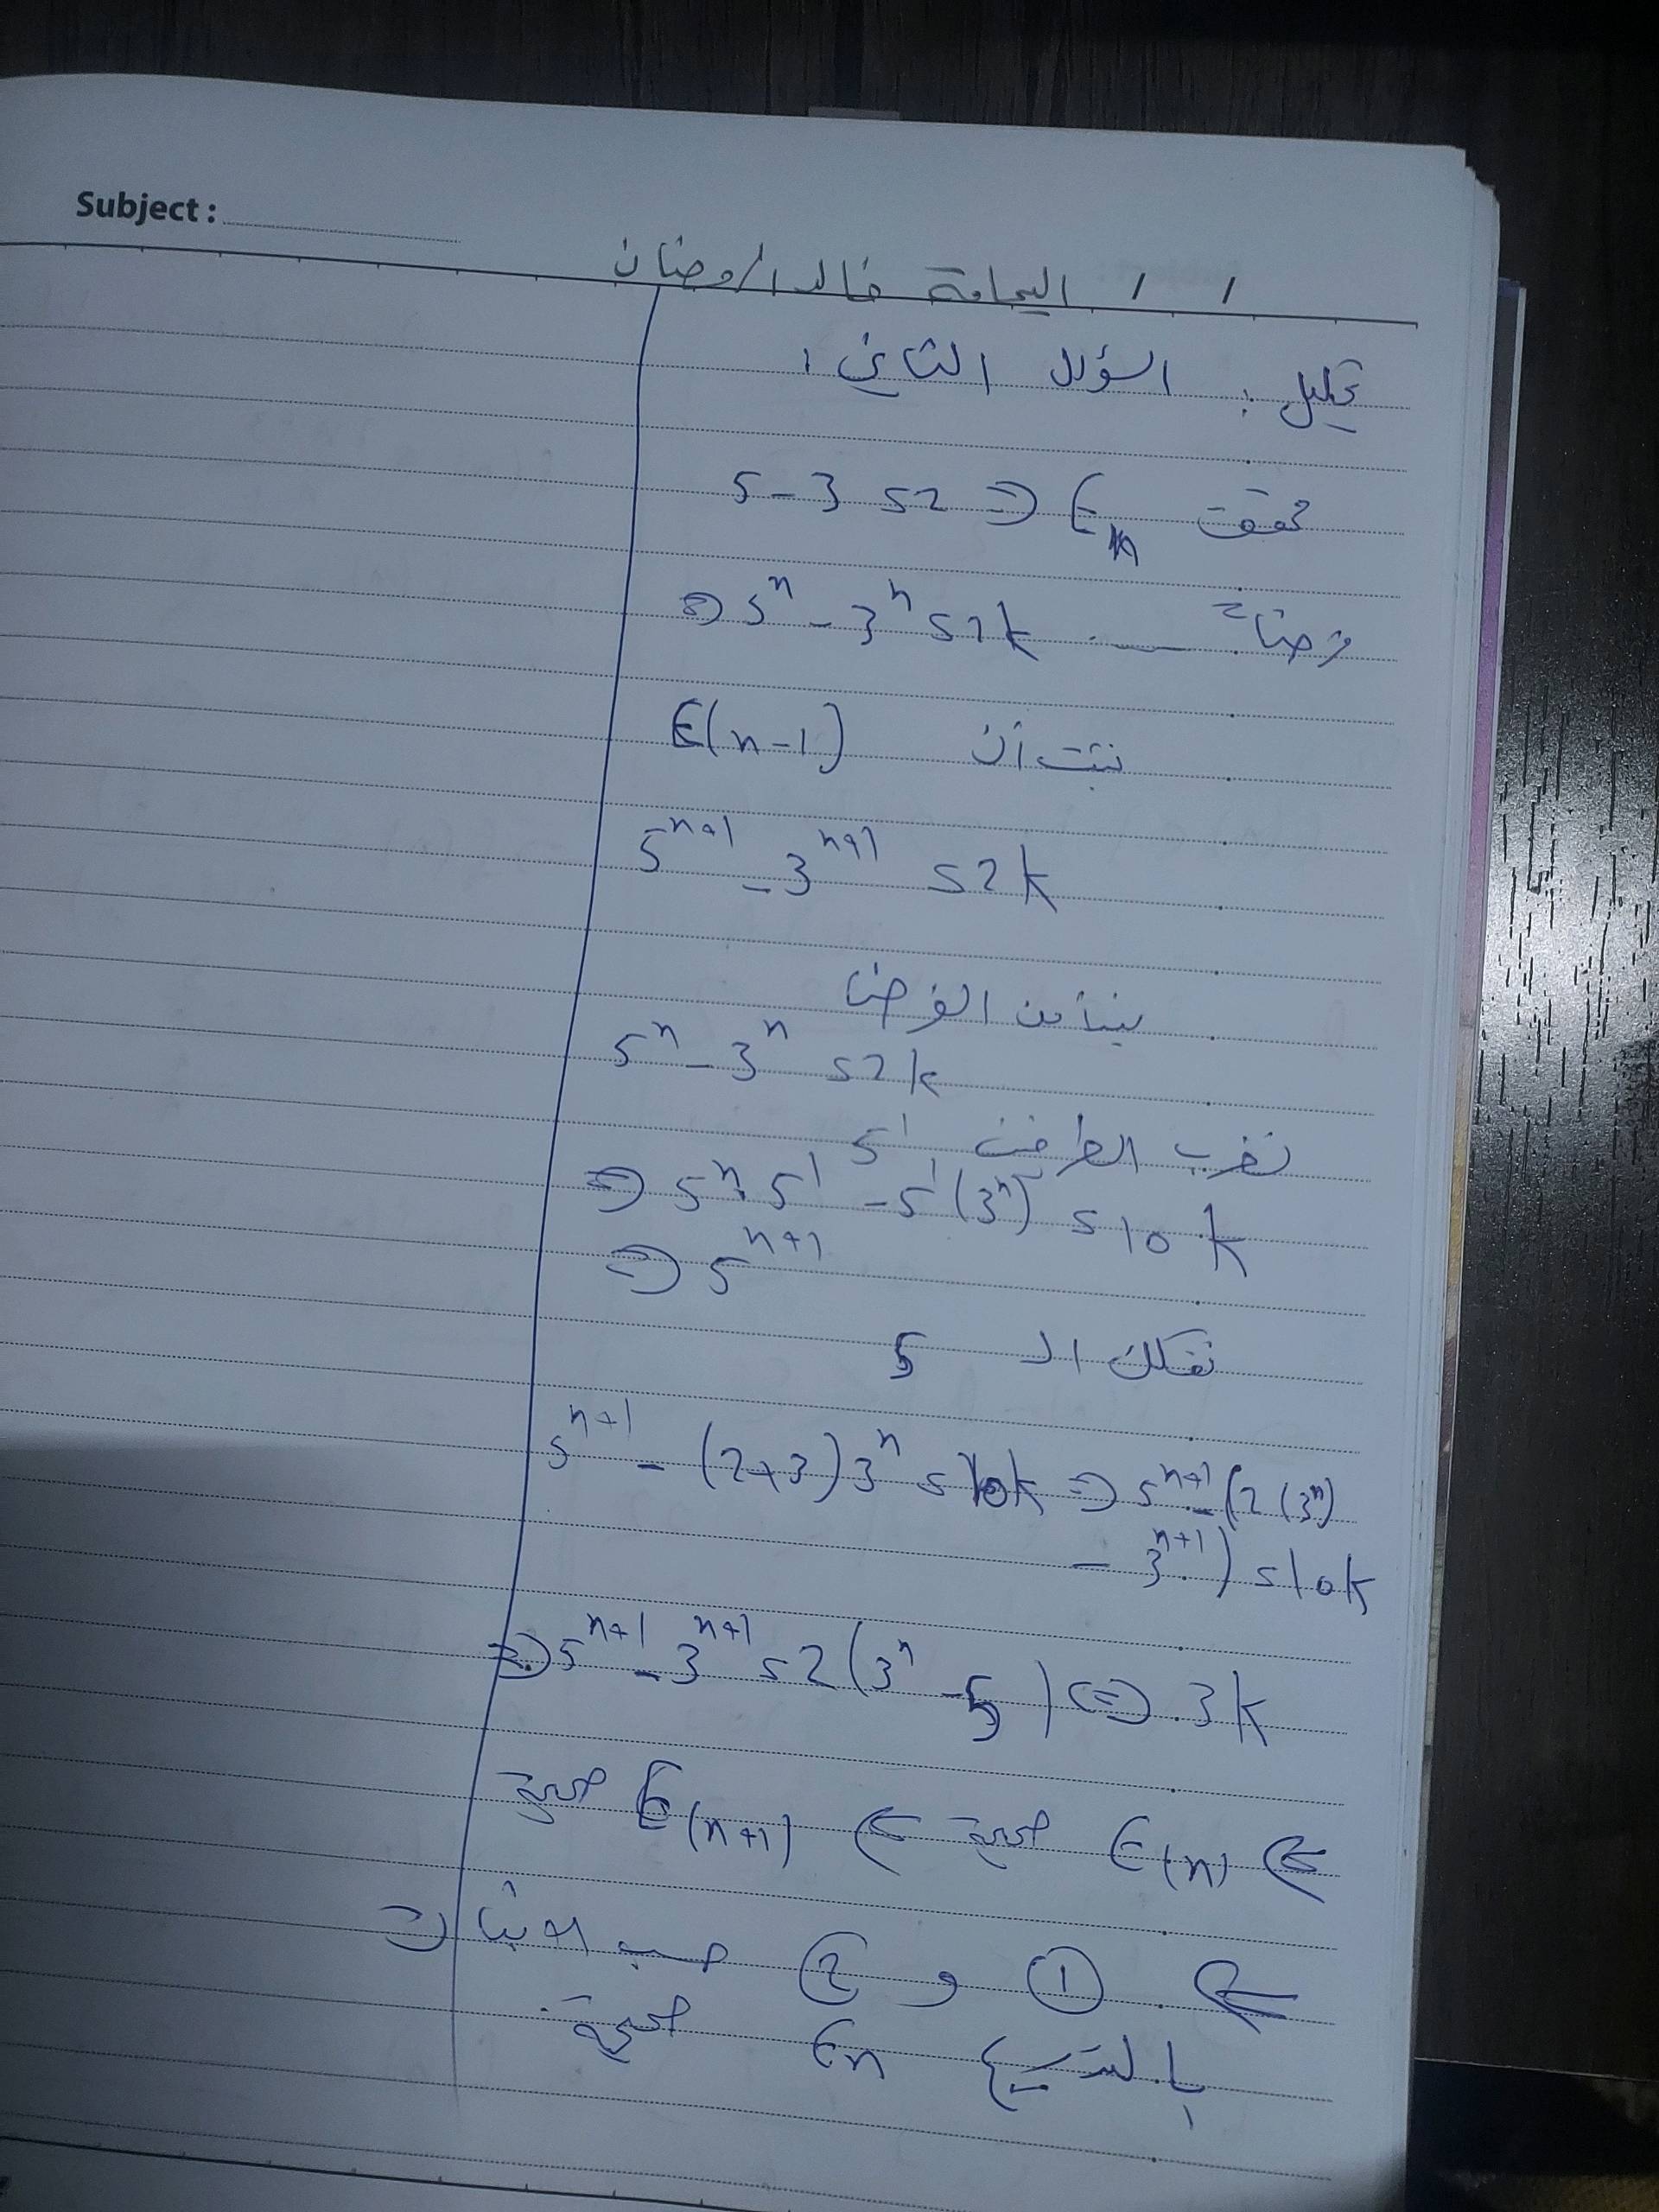 Subject :
/ / اليمامة خالد رمضان
تحليل : السؤال الثاني :
محققة En ⇐ 5 - 3 = 2
فرضاً ⇒ 5^n - 3^n = 2k
نثبت أن E(n-1)
5^n+1 - 3^n+1 = 2k
نبدأ من الفرض
5^n - 3^n = 2k
نضرب الطرفين 5^1
⇒ 5^n . 5^1 - 5^1 (3^n) = 10k
⇒ 5^n+1
نفكك الـ 5
5^n+1 - (2+3) 3^n = 10k ⇒ 5^n+1 - (2(3^n)
- 3^n+1) = 10k
⇒ 5^n+1 - 3^n+1 = 2(3^n - 5) ⇔ 3k
⇐ E(n) صحيحة ⇐ E(n+1) صحيحة
⇐ ① و ② حسب الاثبات
بالتدريج En صحيحة